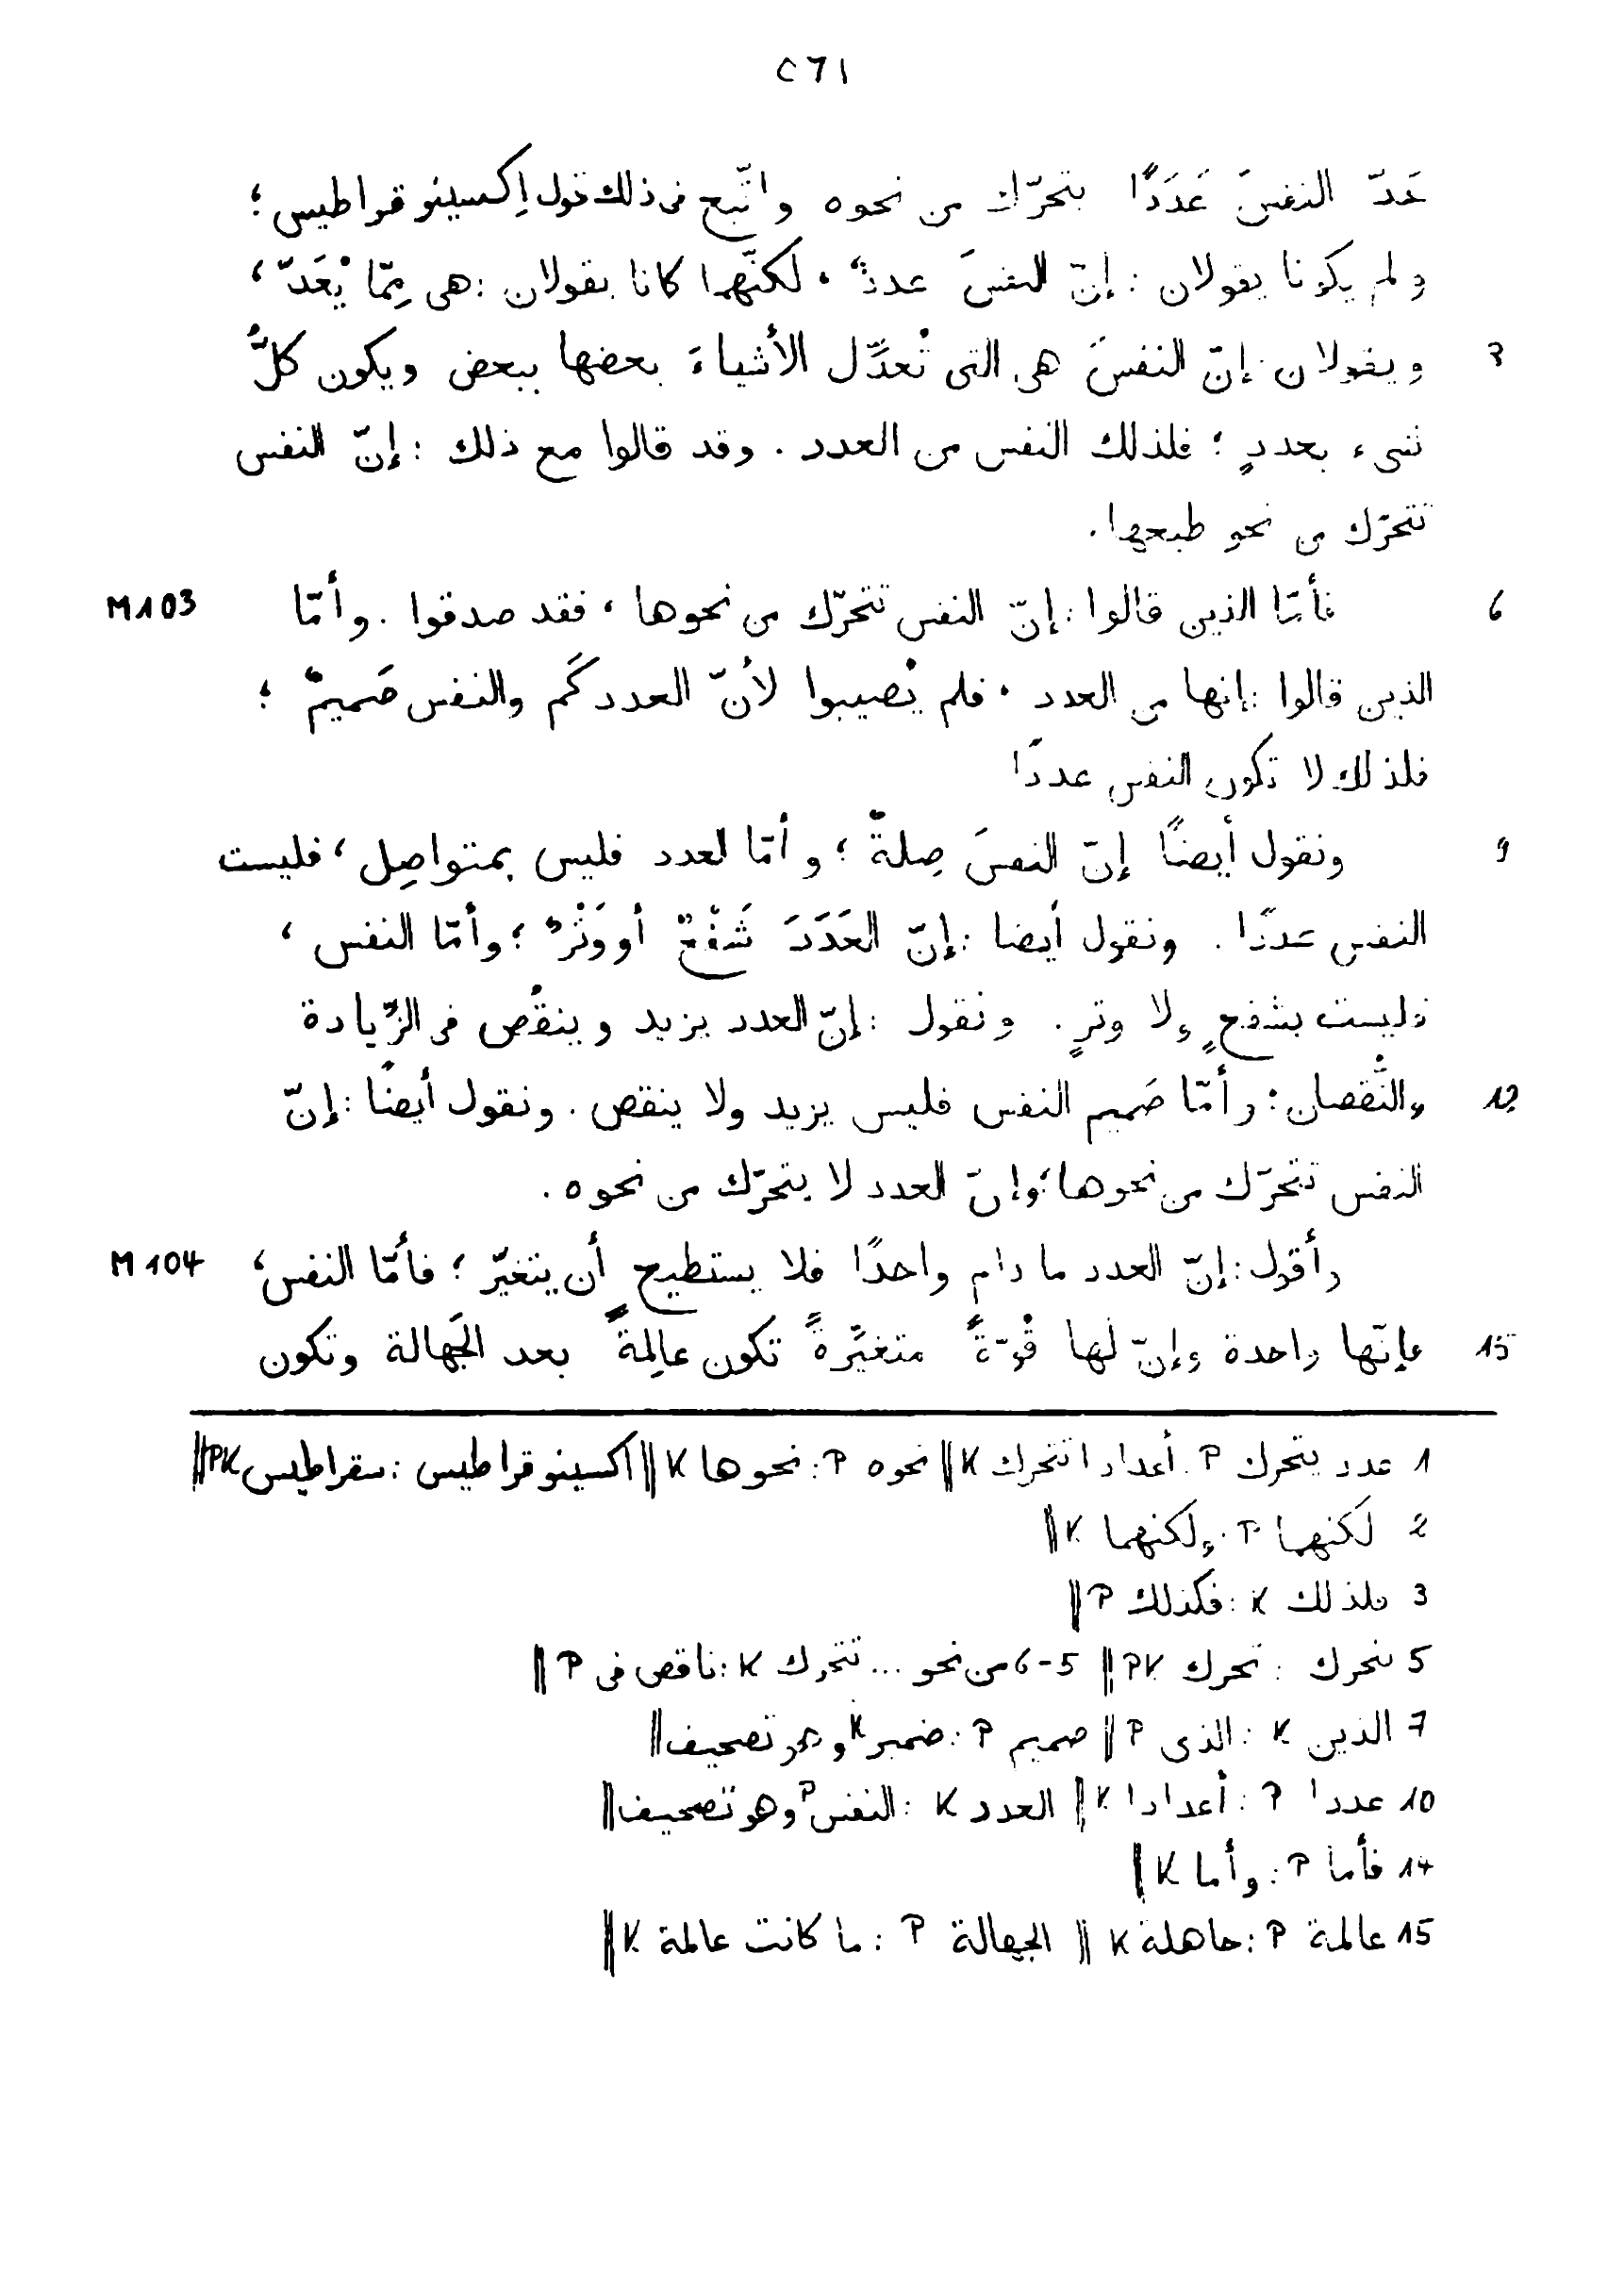 ٢٦١
عَدّ النفسَ عَدَدًا يتحرّك من نحوه واتّبع فى ذلك قول إكسينوقراطيس؛
ولم يكونا يقولان : إنّ النفسَ عددٌ، لكنّهما كانا يقولان : هى مِمّا يُعَدّ،
3 ويقولان : إنّ النفسَ هى التى تُعدِّل الأشياءَ بعضها ببعض ويكون كلُّ
شىء بعددٍ؛ فلذلك النفس من العدد. وقد قالوا مع ذلك : إنّ النفس
تتحرّك من نحو طبعها.
6 فأمّا الذين قالوا : إنّ النفس تتحرّك من نحوها، فقد صدقوا. وأمّا M103
الذين قالوا : إنها من العدد، فلم يُصيبوا لأنّ العدد كَم والنفس صَميمٌ؛
فلذلك لا تكون النفس عددًا
9 ونقول أيضًا إنّ النفسَ صِلةٌ؛ وأمّا العدد فليس بمتواصِل، فليست
النفس عددًا. ونقول أيضا : إنّ العَدَدَ شَفْعٌ أو وَتْرٌ؛ وأمّا النفس،
فليست بشفعٍ ولا وترٍ. ونقول : إنّ العدد يزيد وينقُص فى الزّيادة
12 والنُّقصان : وأمّا صَميم النفس فليس يزيد ولا ينقص. ونقول أيضًا : إنّ
النفس تتحرّك من نحوها؛ وإنّ العدد لا يتحرّك من نحوه.
وأقول : إنّ العدد ما دام واحدًا فلا يستطيع أن يتغيّر؛ فأمّا النفس، M104
15 فإنّها واحدة وإنّ لها قُوّةً متغيِّرةً تكون عالِمةً بعد الجَهالة وتكون
1 عدد يتحرك P : أعدادا تتحرك K || نحوه P : نحوها K || اكسينوقراطيس : سقراطيس PK ||
2 لكنهما P : ولكنهما K ||
3 فلذلك K : فكذلك P ||
5 تتحرك : تحرك PK || 5-6 من نحو ... تتحرك K : ناقص فى P ||
7 الذين K : الذى P || صميم P : ضمير K وهو تصحيف ||
10 عددا P : أعدادا K || العدد K : النفس P وهو تصحيف ||
14 فأما P : وأما K ||
15 عالمة P : جاهلة K || الجهالة P : ما كانت عالمة K ||